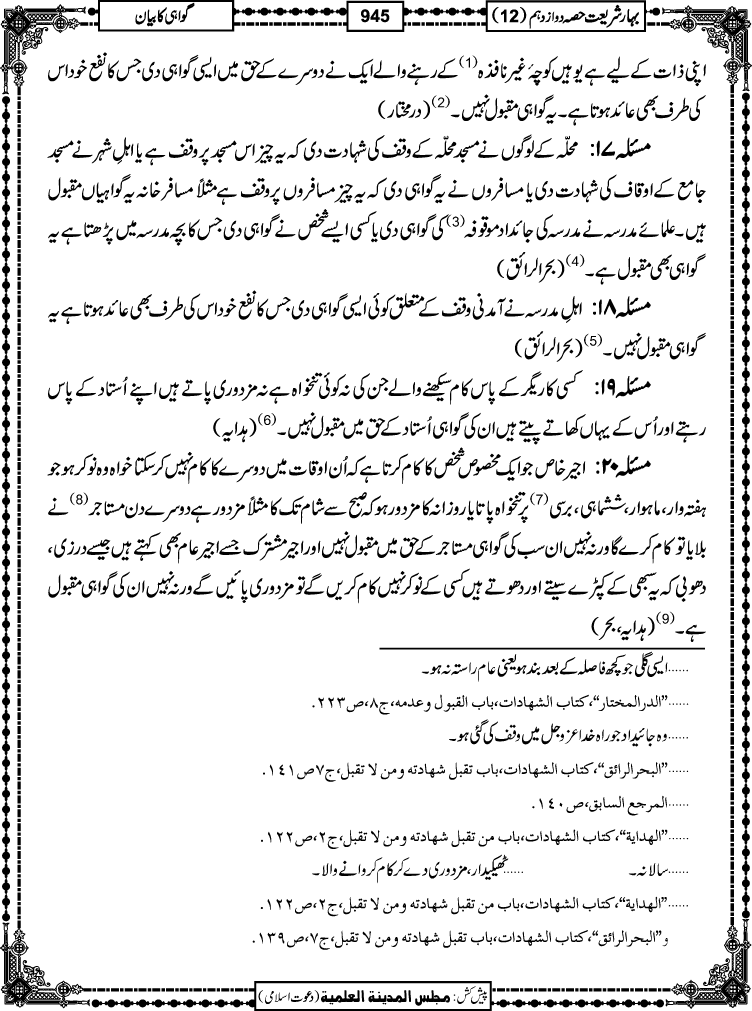 بہار شریعت حصہ دوازدہم (12)
945
گواہی کا بیان
اپنی ذات کے لیے ہے یوہیں کوچۂ غیر نافذہ (1) کے رہنے والے ایک نے دوسرے کے حق میں ایسی گواہی دی جس کا نفع خود اس
کی طرف بھی عائد ہوتا ہے۔ یہ گواہی مقبول نہیں۔ (2) (درمختار)
مسئلہ ۱۷: محلّہ کے لوگوں نے مسجد محلّہ کے وقف کی شہادت دی کہ یہ چیز اس مسجد پر وقف ہے یا اہلِ شہر نے مسجد
جامع کے اوقاف کی شہادت دی یا مسافروں نے یہ گواہی دی کہ یہ چیز مسافروں پر وقف ہے مثلاً مسافر خانہ یہ گواہیاں مقبول
ہیں۔ علمائے مدرسہ نے مدرسہ کی جائداد موقوفہ (3) کی گواہی دی یا کسی ایسے شخص نے گواہی دی جس کا بچہ مدرسہ میں پڑھتا ہے یہ
گواہی بھی مقبول ہے۔ (4) (بحرالرائق)
مسئلہ ۱۸: اہلِ مدرسہ نے آمدنی وقف کے متعلق کوئی ایسی گواہی دی جس کا نفع خود اس کی طرف بھی عائد ہوتا ہے یہ
گواہی مقبول نہیں۔ (5) (بحرالرائق)
مسئلہ ۱۹: کسی کاریگر کے پاس کام سیکھنے والے جن کی نہ کوئی تنخواہ ہے نہ مزدوری پاتے ہیں اپنے اُستاد کے پاس
رہتے اور اُس کے یہاں کھاتے پیتے ہیں ان کی گواہی اُستاد کے حق میں مقبول نہیں۔ (6) (ہدایہ)
مسئلہ ۲۰: اجیر خاص جو ایک مخصوص شخص کا کام کرتا ہے کہ اُن اوقات میں دوسرے کا کام نہیں کرسکتا خواہ وہ نوکر ہو جو
ہفتہ وار، ماہوار، ششماہی، برسی (7) پر تنخواہ پاتا یا روزانہ کا مزدور ہو کہ صبح سے شام تک کا مثلاً مزدور ہے دوسرے دن مستاجر (8) نے
بلایا تو کام کرے گا ورنہ نہیں ان سب کی گواہی مستاجر کے حق میں مقبول نہیں اور اجیر مشترک جسے اجیر عام بھی کہتے ہیں جیسے درزی،
دھوبی کہ یہ سبھی کے کپڑے سیتے اور دھوتے ہیں کسی کے نوکر نہیں کام کریں گے تو مزدوری پائیں گے ورنہ نہیں ان کی گواہی مقبول
ہے۔ (9) (ہدایہ، بحر)
......ایسی گلی جو کچھ فاصلہ کے بعد بند ہو یعنی عام راستہ نہ ہو۔
......”الدرالمختار“،کتاب الشهادات،باب القبول وعدمه،ج۸،ص۲۲۳.
......وہ جائیداد جو راہ خدا عزوجل میں وقف کی گئی ہو۔
......”البحرالرائق“،كتاب الشهادات،باب تقبل شهادته ومن لا تقبل،ج۷ص۱٤۱.
......المرجع السابق،ص۱٤۰.
......”الهداية“،كتاب الشهادات،باب من تقبل شهادته ومن لا تقبل،ج۲،ص۱۲۲.
......سالانہ۔ ......ٹھیکیدار،مزدوری دے کر کام کروانے والا۔
......”الهداية“،كتاب الشهادات،باب من تقبل شهادته ومن لا تقبل،ج۲،ص۱۲۲.
و”البحرالرائق“،كتاب الشهادات،باب تقبل شهادته ومن لا تقبل،ج۷،ص۱۳۹.
پیش کش: مجلس المدينة العلمية (دعوت اسلامی)